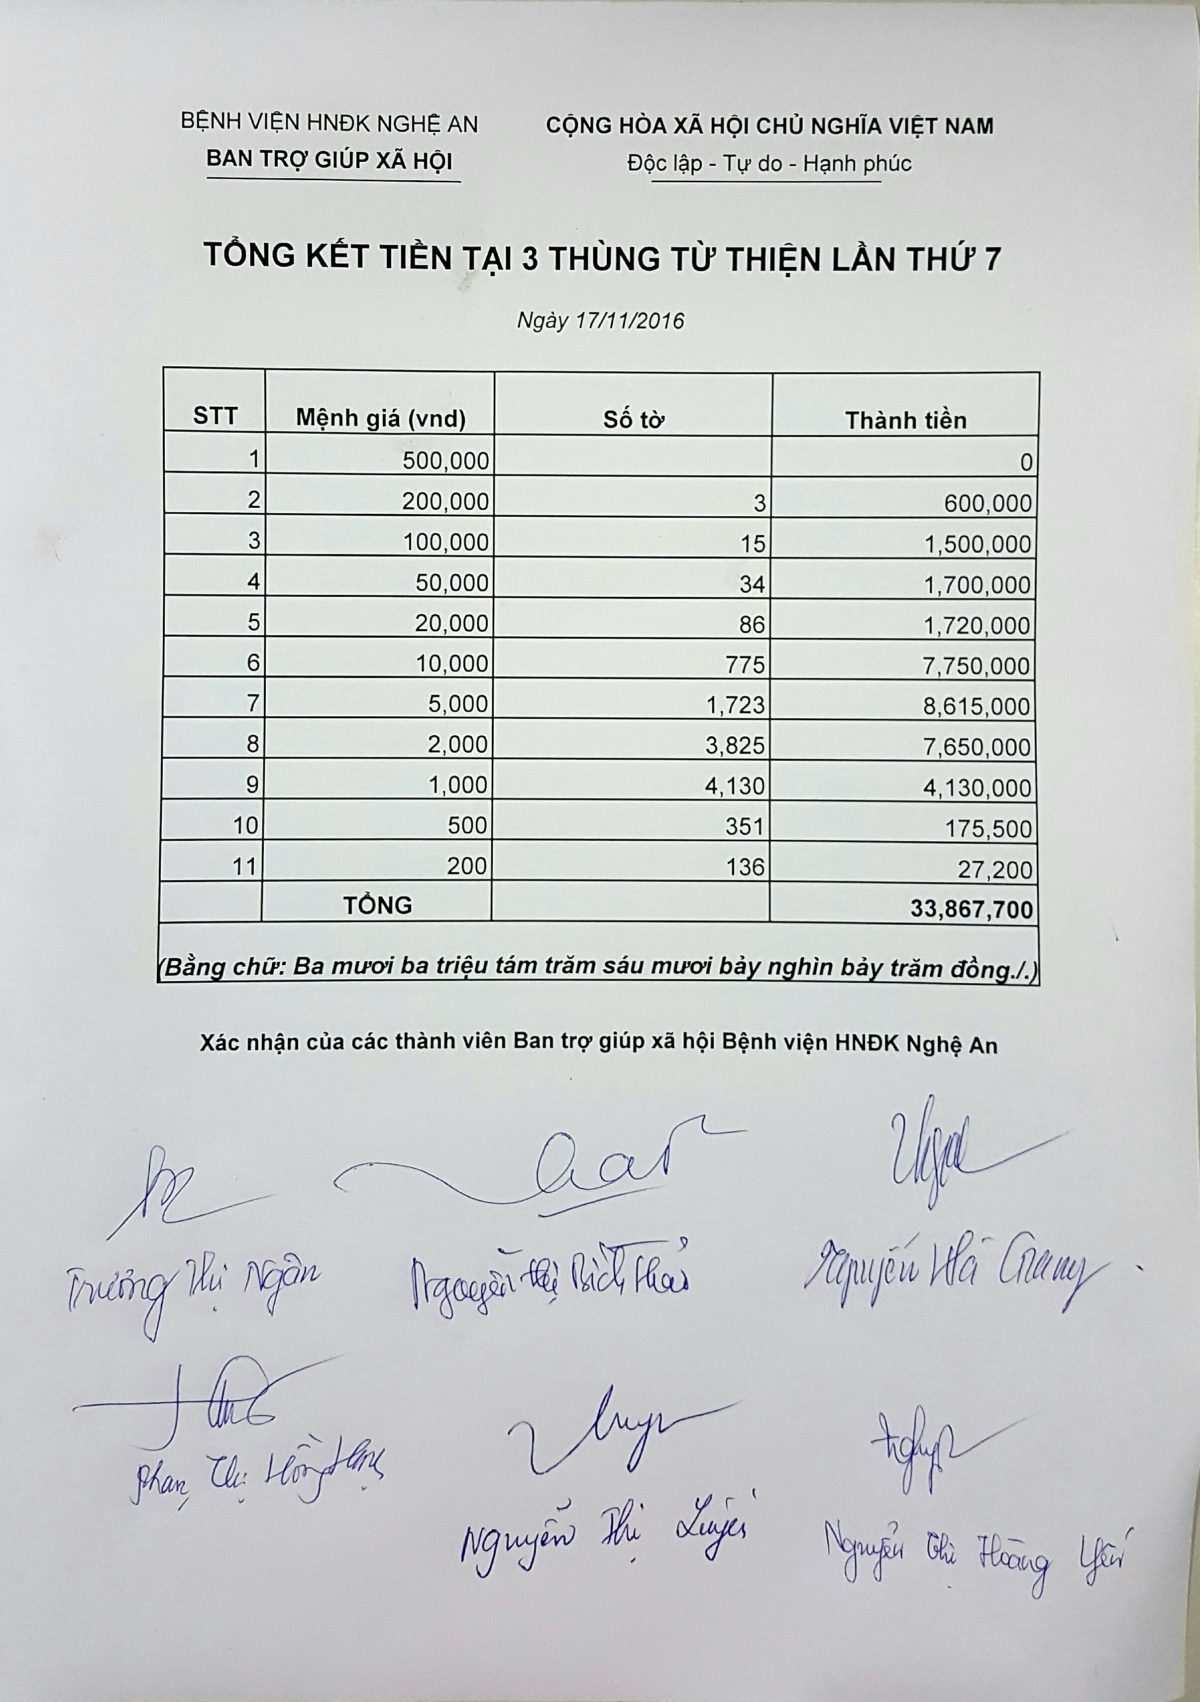 BỆNH VIỆN HNĐK NGHỆ AN
BAN TRỢ GIÚP XÃ HỘI
CỘNG HÒA XÃ HỘI CHỦ NGHĨA VIỆT NAM
Độc lập - Tự do - Hạnh phúc
TỔNG KẾT TIỀN TẠI 3 THÙNG TỪ THIỆN LẦN THỨ 7
Ngày 17/11/2016
STT Mệnh giá (vnd) Số tờ Thành tiền
1 500,000 0
2 200,000 3 600,000
3 100,000 15 1,500,000
4 50,000 34 1,700,000
5 20,000 86 1,720,000
6 10,000 775 7,750,000
7 5,000 1,723 8,615,000
8 2,000 3,825 7,650,000
9 1,000 4,130 4,130,000
10 500 351 175,500
11 200 136 27,200
TỔNG 33,867,700
(Bằng chữ: Ba mươi ba triệu tám trăm sáu mươi bảy nghìn bảy trăm đồng./.)
Xác nhận của các thành viên Ban trợ giúp xã hội Bệnh viện HNĐK Nghệ An
Trương Thị Ngân Nguyễn Thị Bích Thảo Nguyễn Hà Giang
Phan Thị Hồng
Nguyễn Thị
Nguyễn Thị Hoàng Yến